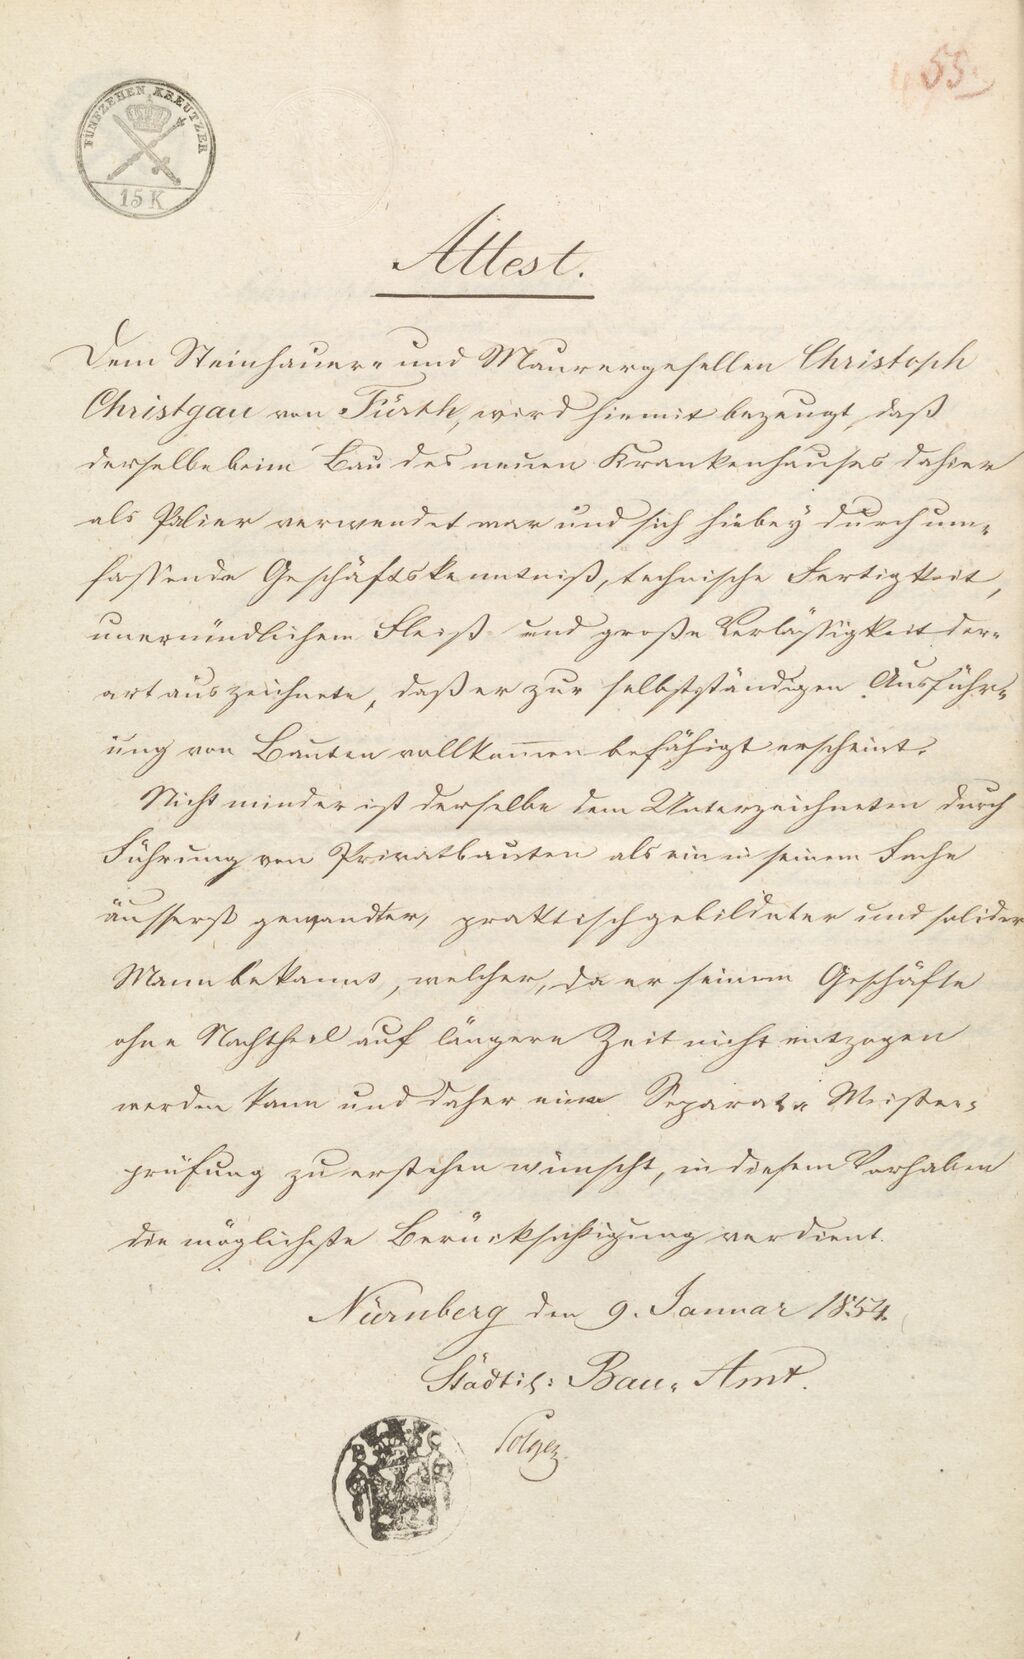 55.
FÜNFZEHEN KREUTZER
15 K
Attest.
Dem Steinhauer- und Maurergesellen Christoph
Christgau von Fürth, wird hiemit bezeugt, daß
derselbe beim Bau des neuen Krankenhauses dahier
als Palier verwendet war und sich hiebey durch um-
fassende Geschäftskenntniß, technische Fertigkeit,
unermüdlichem Fleiß und große Verläßigkeit der-
art auszeichnete, daß er zur selbstständigen Ausführ-
ung von Bauten vollkommen befähigt erscheint.
Nicht minder ist derselbe dem Unterzeichneten durch
Führung von Privatbauten als ein in seinem Fache
äusserst gewandter, praktisch gebildeter und solider
Mann bekannt, welcher, da er seinem Geschäfte
ohne Nachtheil auf längere Zeit nicht entzogen
werden kann und daher eine Separat- Meister-
prüfung zu erstehen wünscht, in diesem Vorhaben
die möglichste Berücksichtigung verdient.
Nürnberg den 9. Januar 1854.
Städtis: Bau-Amt.
Solger